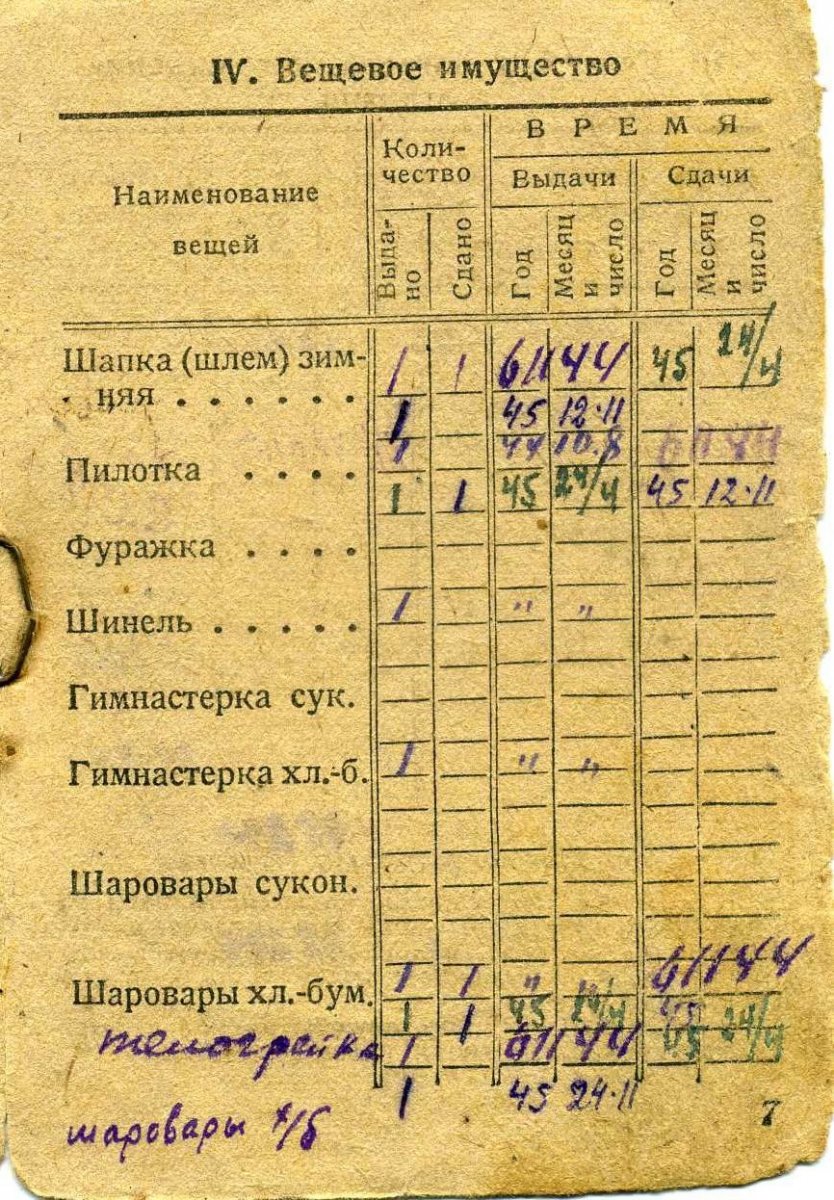 IV. Вещевое имущество
Наименование вещей
Коли-
чество
ВРЕМЯ
Выдачи Сдачи
Выда-
но
Сдано
Год
Месяц
и
число
Год
Месяц
и
число
Шапка (шлем) зим- 1 1 6/II 44 45 24/4
няя . . . . . .
1 45 12·11
1 44 10.8 6/II 44
Пилотка . . . .
1 1 45 24/4 45 12·11
Фуражка . . . .
Шинель . . . . . 1 " "
Гимнастерка сук.
Гимнастерка хл.-б. 1 " "
Шаровары сукон.
1 1 " " 6/II 44
Шаровары хл.-бум.
1 1 45 24/4
телогрейка 1 6/II 44 45 24/4
1 45 24·11
шаровары х/б
7